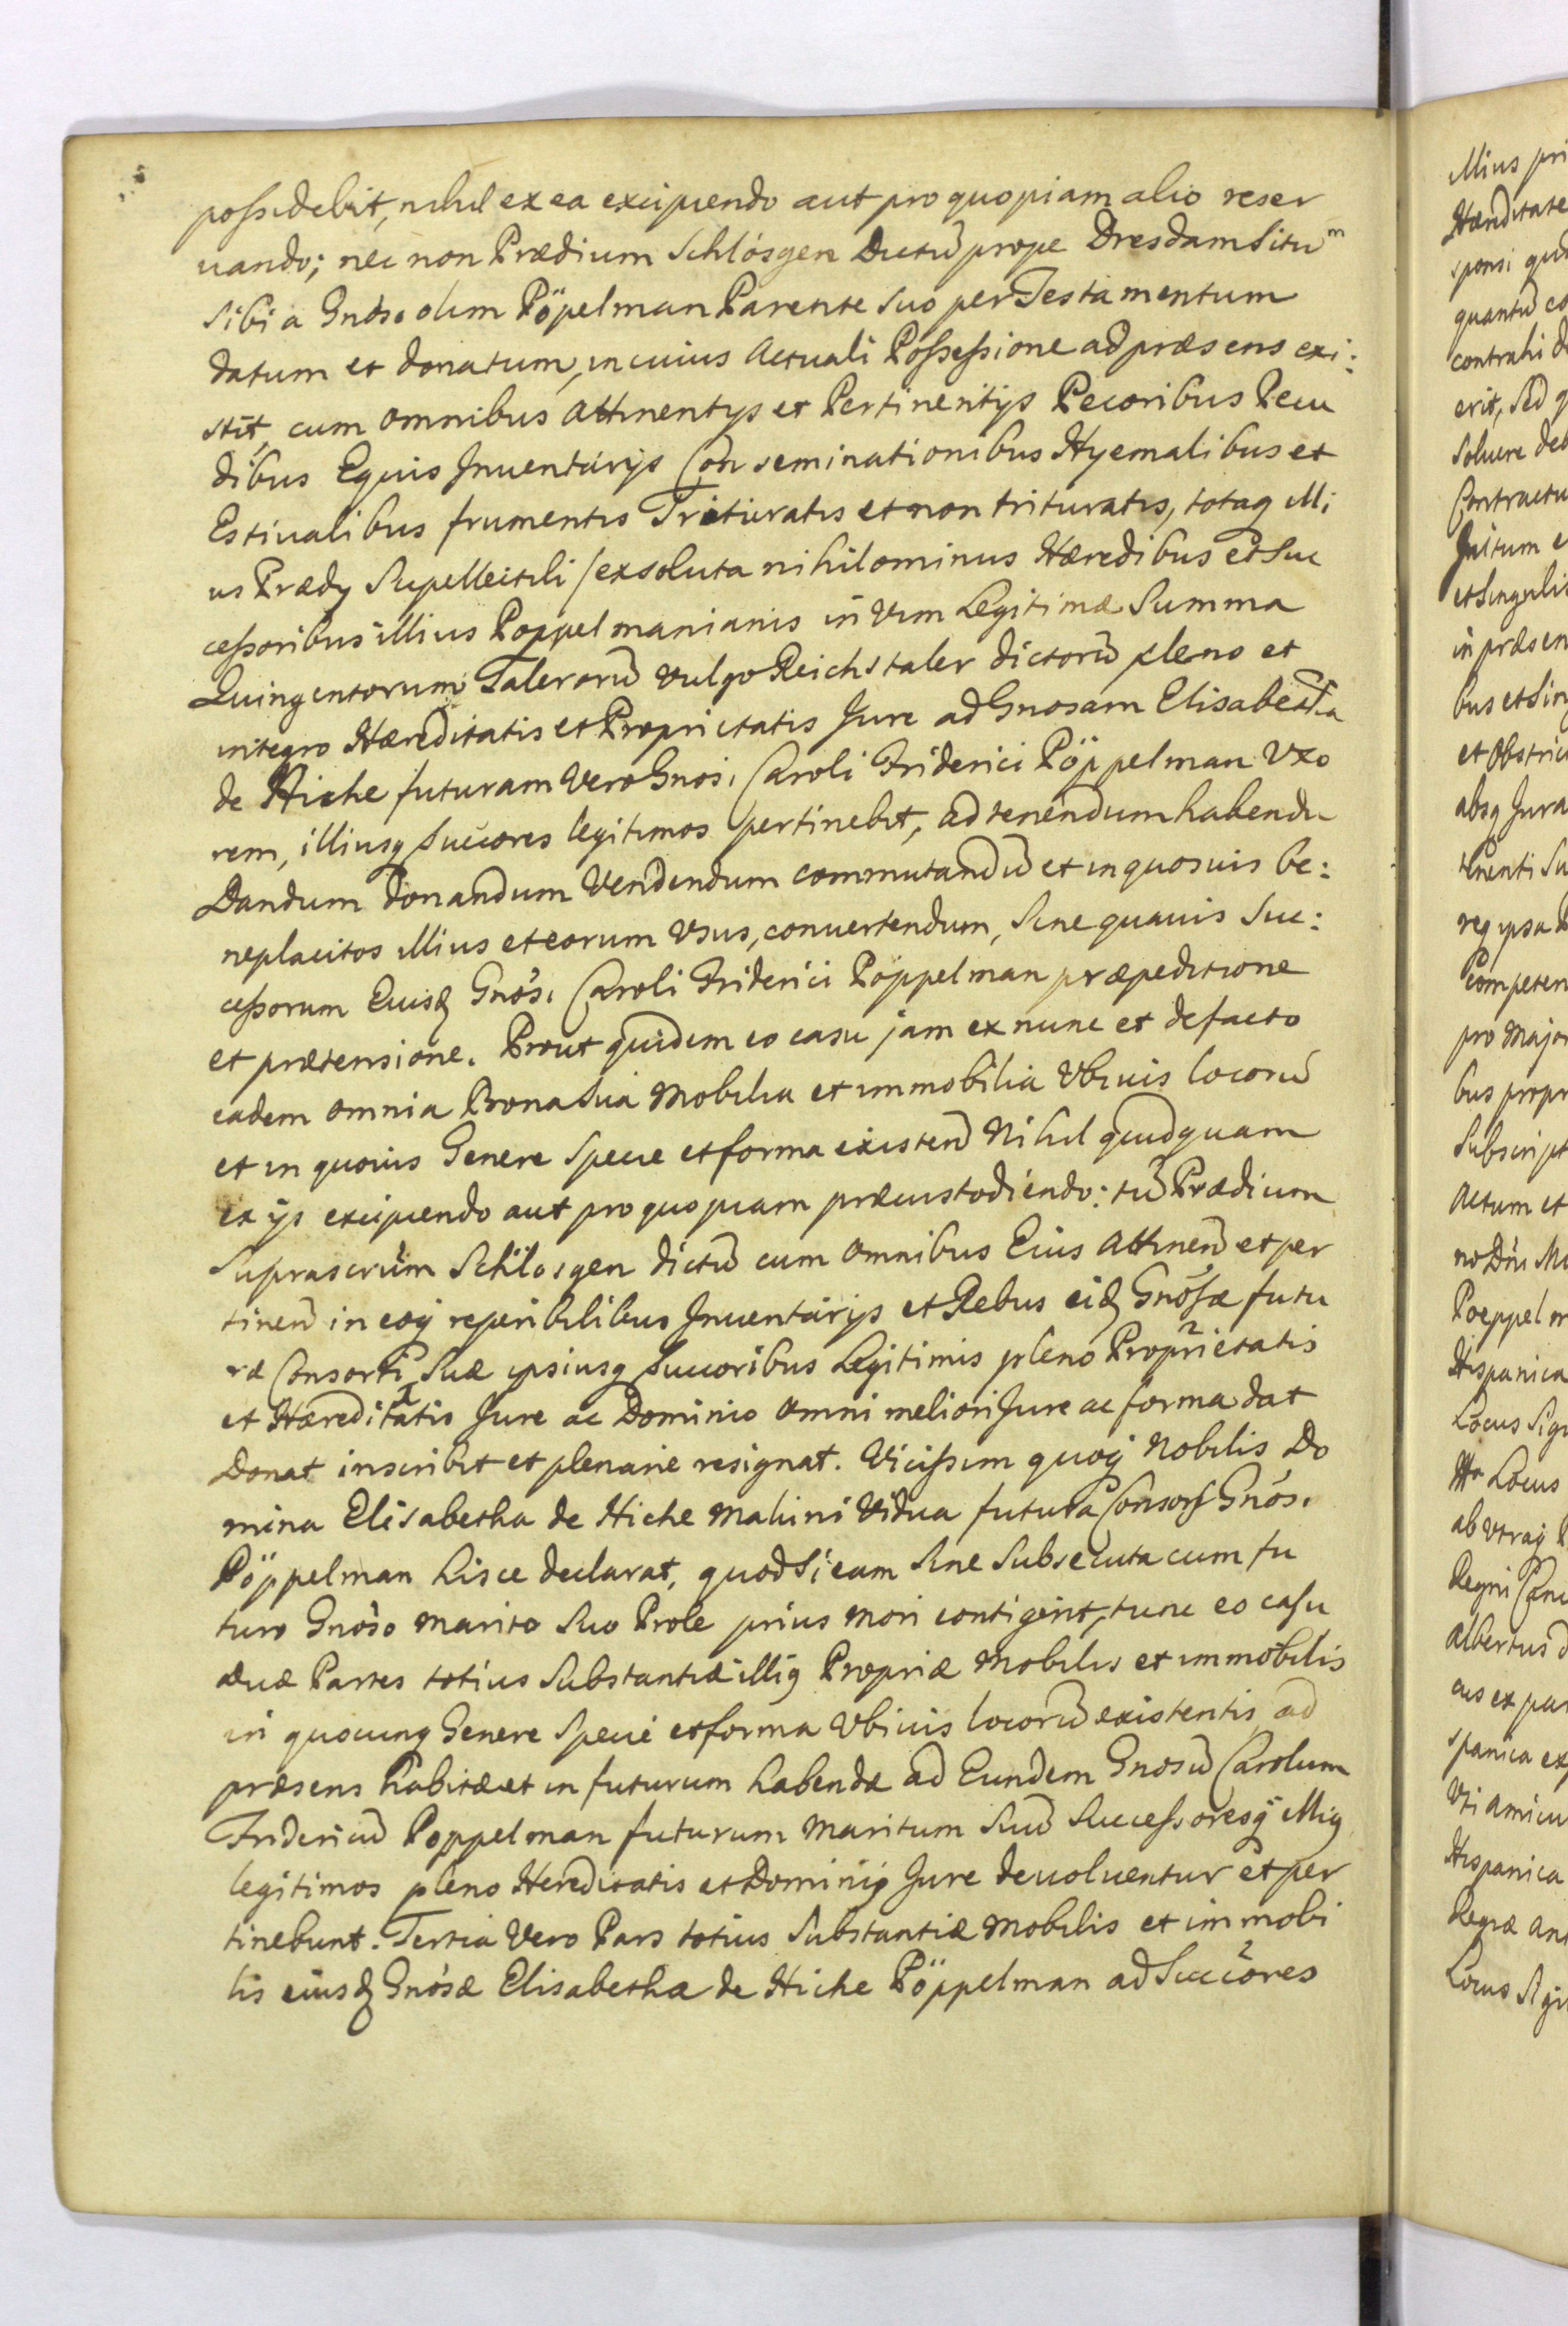 possidebit, nihil ex ea excipiendo aut pro quopiam alio reser
uando; nec non Prædium Schlósgen Dictū prope Dresdam Situm
sibi a Gnoso olim Pöpelman Parente suo per Testamentum
datum et donatum, in cuius Actuali Possessione ad præsens exi:
stit, cum omnibus Attinentijs et Pertinentijs Pecoribus Pecu
dibus Equis Inuentarijs Con seminationibus Hyemalibus et
Estiualibus frumentis Trituratis et non trituratis, totaq illi
us Prædij Supellectili /exsoluta nihilominus Hæredibus et Suc
cessoribus illius Poppelmanianis in vim Legitimæ Summa
Quingentorum Talerorū vulgo Reichstaler dictorū pleno et
integro Hæreditatis et Proprietatis Jure ad Gnosam Elisabetha
de Hiche futuram vero Gnosi Caroli Friderici Pöppelman Vxo
rem, illiusq Succores legitimos pertinebit, ad tenendum habendū
Dandum Donandum Vendendum commutandū et in quosuis be:
neplacitos illius et eorum Vsus, conuertendum, sine quauis Suc:
cessorum Eiusd Gnosi Caroli Friderici Pöppelman præpeditione
et prætensione. Prout quidem eo casu jam ex nunc et de facto
eadem omnia Bona sua Mobilia et immobilia Vbiuis locorū
et in quouis Genere Specie et forma existen Nihil quidquam
ex ijs excipiendo aut pro quopiam præcustodiendo: tū Prædium
Suprascrūm Schlösgen dictū cum omnibus Eius Attinen et per
tinen in eoq reperibilibus Inuentarijs et Rebus eid Gnosæ futu
ræ Consorti Suæ ipsiusq Succoribus Legitimis pleno Proprietatis
et Hæreditatis Jure ac Dominio omni meliori Jure ac forma dat
Donat inscribit et plenarie resignat. Vicissim quoq Nobilis Do
mina Elisabetha de Hiche Mahini Vidua futura Consors Gnosi
Pöppelman hisce declarat, quod si eam sine subsecuta cum fu
turo Gnoso marito suo Prole prius mori contigerit, tunc eo casu
duæ Partes totius Substantiæ illig Propriæ Mobilis et immobilis
in quocunq Genere Specie et forma Vbiuis locorū existentis, ad
præsens habitæ et in futurum habendæ ad Eundem Gnosū Carolum
Fridericū Poppelman futurum Maritum Suū Successoresq illig
legitimos pleno Hereditatis et Dominij Jure deuoluentur et per
tinebunt. Tertia Vero Pars totius Substantiæ Mobilis et immobi
lis eiusd Gnosæ Elisabetha de Hiche Pöppelman ad Succores